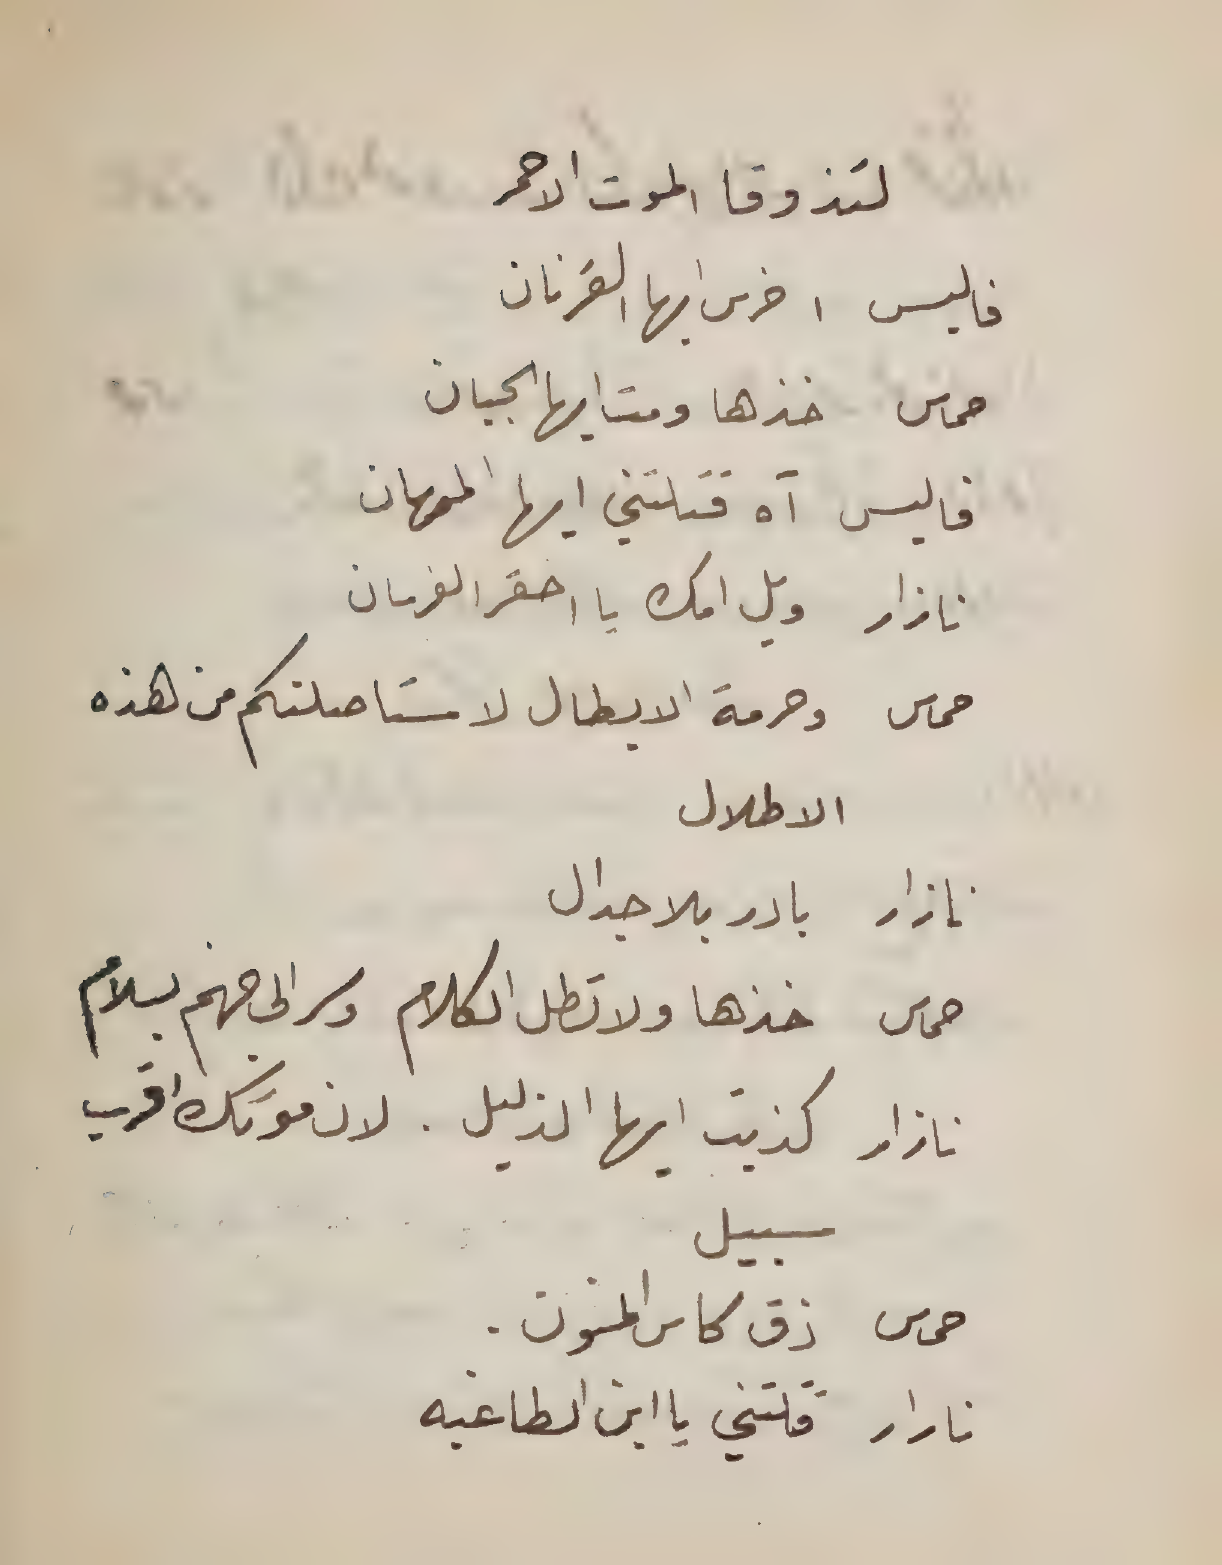 لتذوقا الموت الاحمر
فاليس اخرس ايها القرنان
حماس خذها ومت ايها الجبان
فاليس آه قتلتني ايها المهان
نازار ويل امك يا احقر الفرسان
حماس وحرمة الابطال لاستاصلنكم من هذه
الاطلال
نازار بادر بلا جدال
حماس خذها ولا تطل الكلام وسر الى جهنم بسلام
نازار كذبت ايها الذليل . لان موتك اقرب
سبيل
حماس ذق كاس المنون .
نارار قلتني يا ابن الطاغيه